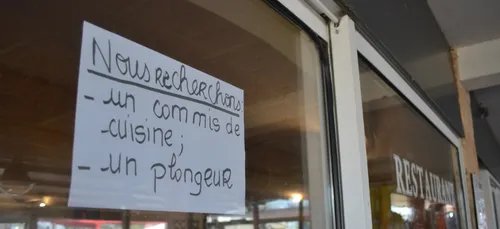 Nous recherchons
- un commis de
cuisine ;
- un plongeur
RESTAURANT